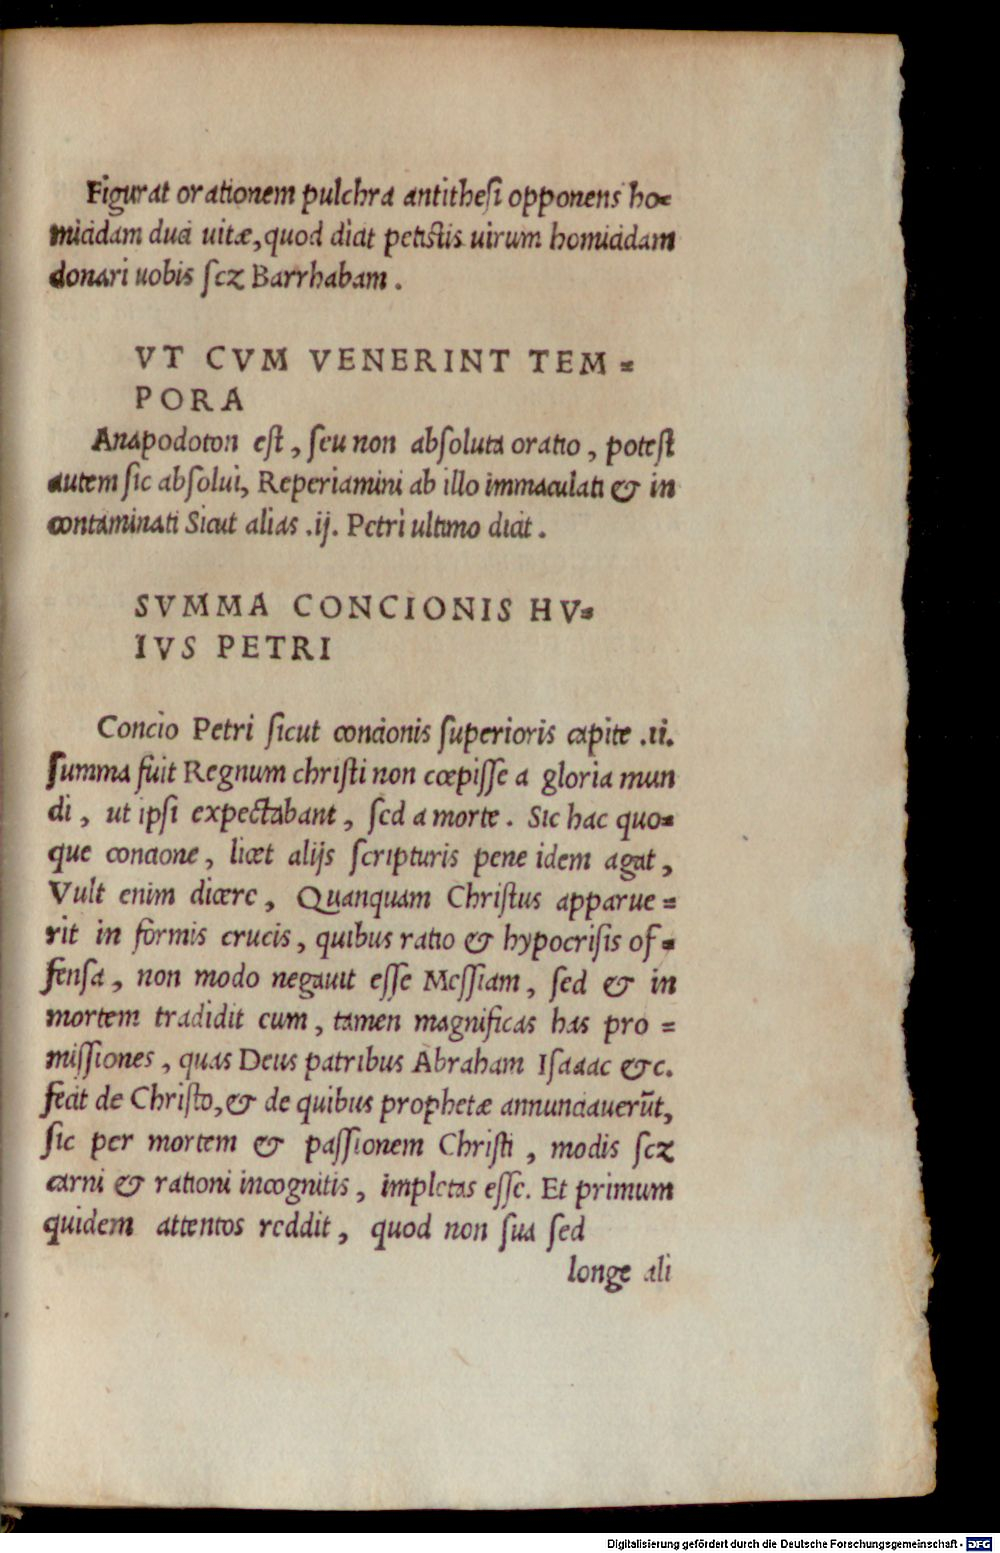 Figurat orationem pulchra antithesi opponens ho=
micidam duci uitæ, quod dicit petistis uirum homicidam
donari uobis scz Barrhabam .
VT CVM VENERINT TEM=
PORA
Anapodoton est, seu non absoluta oratio, potest
autem sic absolui, Reperiamini ab illo immaculati & in
contaminati Sicut alias .ij. Petri ultimo dicit .
SVMMA CONCIONIS HV=
IVS PETRI
Concio Petri sicut concionis superioris capite .ii.
summa fuit Regnum christi non cœpisse a gloria mun
di, ut ipsi expectabant, sed a morte. Sic hac quo=
que concione, licet alijs scripturis pene idem agat,
Vult enim dicere, Quanquam Christus apparue=
rit in formis crucis, quibus ratio & hypocrisis of=
fensa, non modo negauit esse Messiam, sed & in
mortem tradidit eum, tamen magnificas has pro=
missiones, quas Deus patribus Abraham Isaaac &c.
fecit de Christo, & de quibus prophetæ annunciauerūt,
sic per mortem & passionem Christi, modis scz
carni & rationi incognitis, impletas esse. Et primum
quidem attentos reddit, quod non sua sed
longe ali
Digitalisierung gefördert durch die Deutsche Forschungsgemeinschaft - DFG